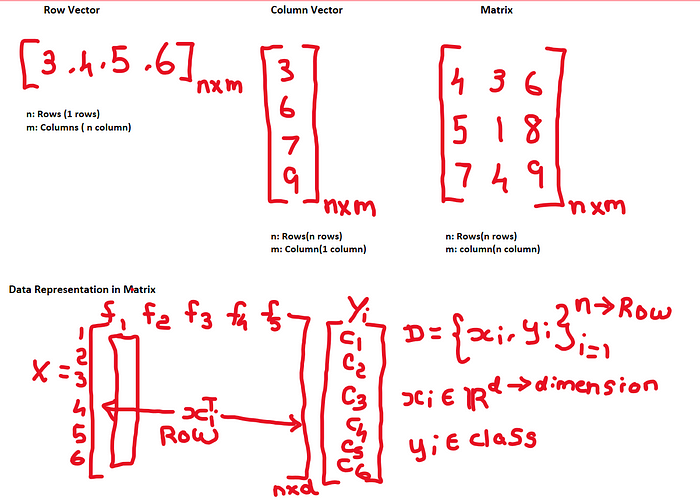 Row Vector
[3 .4 .5 .6] nxm
n: Rows (1 rows)
m: Columns ( n column)
Column Vector
3
6
7
9
nxm
n: Rows(n rows)
m: Column(1 column)
Matrix
4 3 6
5 1 8
7 4 9
nxm
n: Rows(n rows)
m: column(n column)
Data Representation in Matrix
f1 f2 f3 f4 f5
X =
1
2
3
4
5
6
xiT
Row
nxd
Yi
C1
C2
C3
C4
C5
C6
D = {xi, yi}n i=1 → Row
xi ∈ ℝd → dimension
yi ∈ class